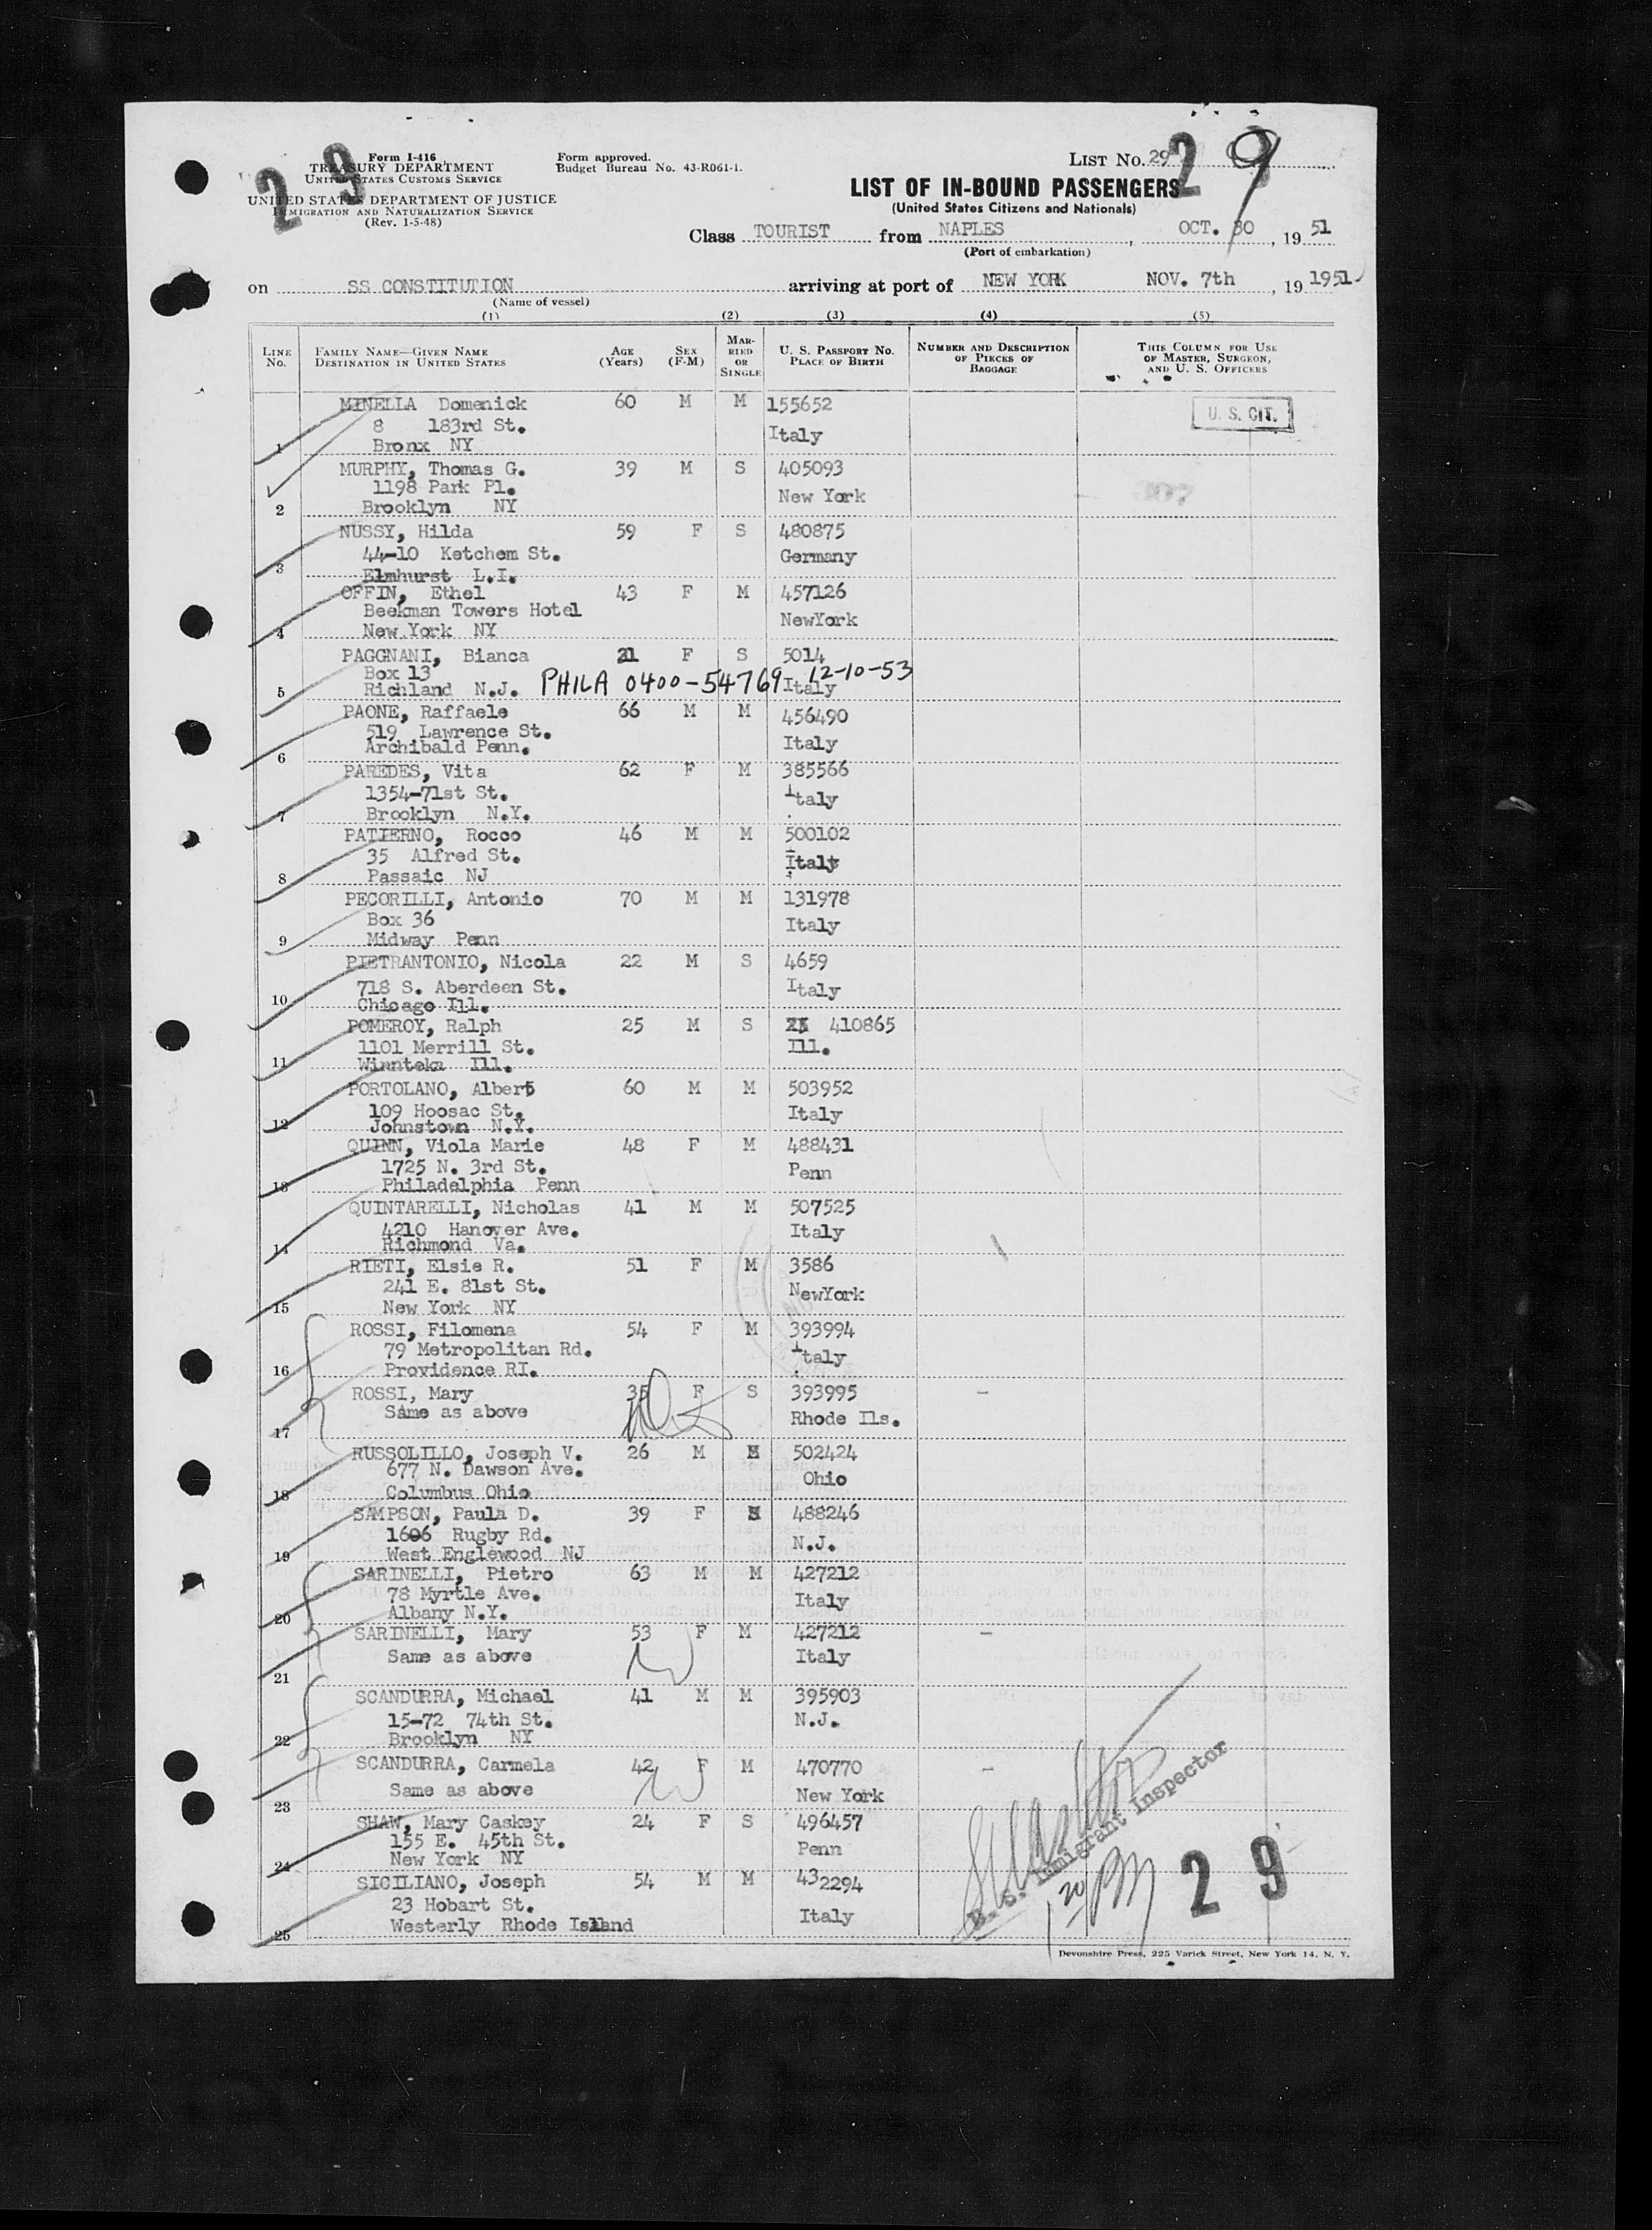 Form I-416
TREASURY DEPARTMENT
UNITED STATES CUSTOMS SERVICE
UNITED STATES DEPARTMENT OF JUSTICE
IMMIGRATION AND NATURALIZATION SERVICE
(Rev. 1-5-48)
2 9
Form approved.
Budget Bureau No. 43-R061-1.
LIST No. 29
2 9
LIST OF IN-BOUND PASSENGERS
(United States Citizens and Nationals)
Class TOURIST from NAPLES, OCT. 30, 19 51
(Port of embarkation)
on SS CONSTITUTION arriving at port of NEW YORK NOV. 7th, 19 1951
(Name of vessel)
(1) (2) (3) (4) (5)
LINE No. FAMILY NAME—GIVEN NAME DESTINATION IN UNITED STATES AGE (Years) SEX (F-M) MARRIED OR SINGLE U. S. PASSPORT No. PLACE OF BIRTH NUMBER AND DESCRIPTION OF PIECES OF BAGGAGE THIS COLUMN FOR USE OF MASTER, SURGEON, AND U. S. OFFICERS
MINELLA Domenick 60 M M 155652
8 183rd St. U. S. CIT.
1 Bronx NY Italy
MURPHY, Thomas G. 39 M S 405093
1198 Park Pl. New York 307
2 Brooklyn NY
NUSSY, Hilda 59 F S 480875
44-10 Ketchem St. Germany
3 Elmhurst L.I.
OFFIN, Ethel 43 F M 457126
Beekman Towers Hotel NewYork
4 New York NY
PAGGNANI, Bianca 21 F S 5014
Box 13
5 Richland N.J. PHILA 0400-54769 Italy 12-10-53
PAONE, Raffaele 66 M M 456490
519 Lawrence St. Italy
6 Archibald Penn.
PAREDES, Vita 62 F M 385566
1354-71st St. Italy
7 Brooklyn N.Y.
PATIERNO, Rocco 46 M M 500102
35 Alfred St. Italy
8 Passaic NJ
PECORILLI, Antonio 70 M M 131978
Box 36 Italy
9 Midway Penn
PIETRANTONIO, Nicola 22 M S 4659
718 S. Aberdeen St. Italy
10 Chicago Ill.
POMEROY, Ralph 25 M S 410865
1101 Merrill St. Ill.
11 Winnteka Ill.
PORTOLANO, Albert 60 M M 503952
109 Hoosac St. Italy
12 Johnstown N.Y.
QUINN, Viola Marie 48 F M 488431
1725 N. 3rd St. Penn
13 Philadelphia Penn
QUINTARELLI, Nicholas 41 M M 507525
4210 Hanover Ave. Italy
14 Richmond Va.
RIETI, Elsie R. 51 F M 3586
241 E. 81st St. NewYork
15 New York NY
ROSSI, Filomena 54 F M 393994
79 Metropolitan Rd. Italy
16 Providence RI.
ROSSI, Mary 35 F S 393995 -
Same as above Rhode Ils.
17
RUSSOLILLO, Joseph V. 26 M 502424
677 N. Dawson Ave. Ohio
18 Columbus Ohio
SAMPSON, Paula D. 39 F 488246
1606 Rugby Rd. N.J.
19 West Englewood NJ
SARINELLI, Pietro 63 M M 427212
78 Myrtle Ave. Italy
20 Albany N.Y.
SARINELLI, Mary 53 F M 427212 -
Same as above Italy
21
SCANDURRA, Michael 41 M M 395903
15-72 74th St. N.J.
22 Brooklyn NY
SCANDURRA, Carmela 42 F M 470770 -
Same as above New York
23
SHAW, Mary Caskey 24 F S 496457
155 E. 45th St. Penn
24 New York NY
SICILIANO, Joseph 54 M M 432294
23 Hobart St. Italy
25 Westerly Rhode Island
U. S. Immigrant Inspector
2 9
Devonshire Press, 225 Varick Street, New York 14, N. Y.